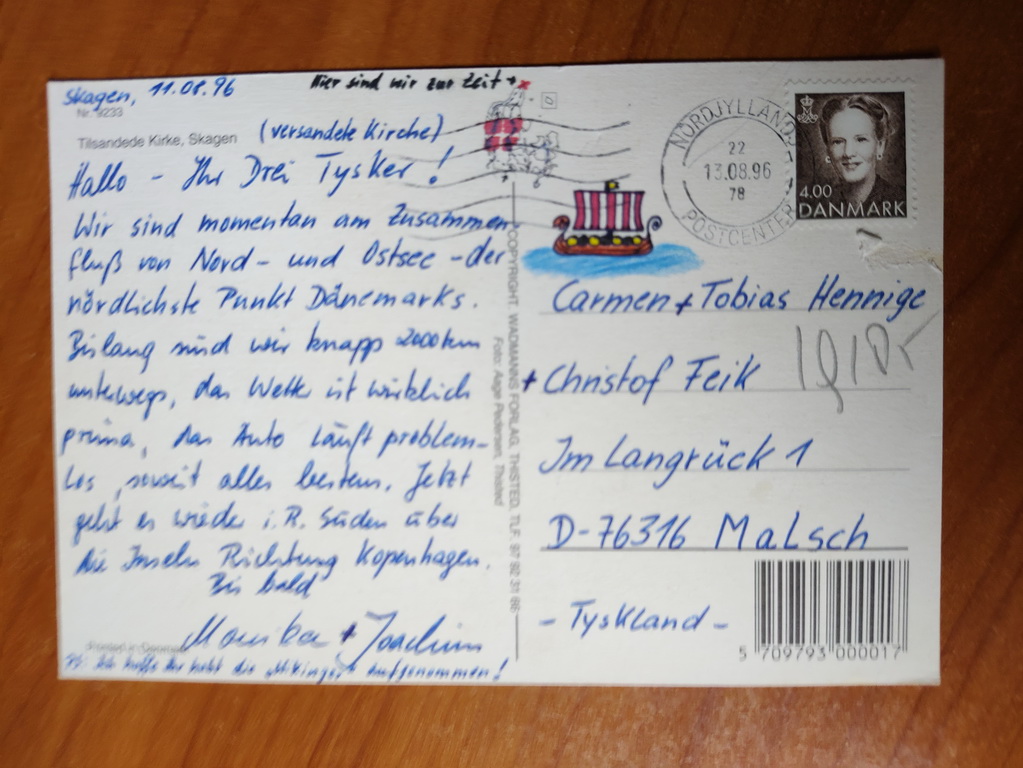 Skagen, 11.08.96
Hier sind wir zur Zeit →
Nr. 9233
Tilsandede Kirke, Skagen
(versandete Kirche)
Hallo - Ihr Drei Tysker!
Wir sind momentan am Zusammen-
fluß von Nord- und Ostsee - der
nördlichste Punkt Dänemarks.
Bislang sind wir knapp 2000 km
unterwegs, das Wetter ist wirklich
prima, das Auto läuft problem-
los, soweit alles bestens. Jetzt
geht es wieder i. R. Süden über
die Inseln Richtung Kopenhagen.
Bis bald
Monika + Joachim
Printed in Denmark
PS: Ich hoffe Ihr habt die "Wikinger" aufgenommen!
COPYRIGHT: WADMANNS FORLAG, THISTED, TLF. 97 92 31 66
Foto: Aage Pedersen, Thisted
NORDJYLLANDS
22
13.08.96
78
POSTCENTER
4.00
DANMARK
Carmen + Tobias Hennige
+ Christof Feik
Im Langrück 1
D-76316 Malsch
- Tyskland -
5 709793 000017